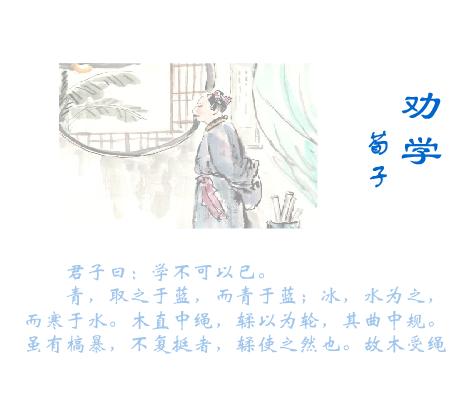 劝学
荀子
君子曰：学不可以已。
青，取之于蓝，而青于蓝；冰，水为之，
而寒于水。木直中绳，輮以为轮，其曲中规。
虽有槁暴，不复挺者，輮使之然也。故木受绳